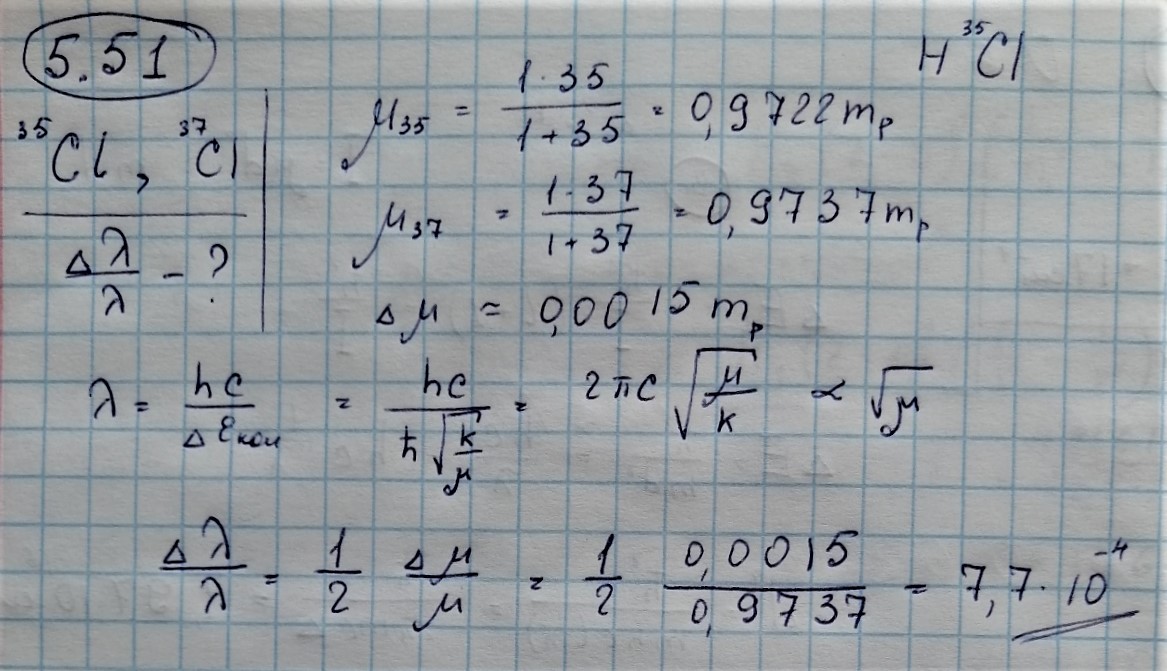 5.51
H ³⁵Cl
³⁵Cl, ³⁷Cl
Δλ/λ - ?
μ₃₅ = (1·35)/(1+35) = 0,9722 mₚ
μ₃₇ = (1·37)/(1+37) = 0,9737 mₚ
Δμ ≈ 0,0015 mₚ
λ = hc/Δε_кол = hc/(ħ√(k/μ)) = 2πc √(μ/k) ∝ √μ
Δλ/λ = 1/2 Δμ/μ = 1/2 0,0015/0,9737 = 7,7·10⁻⁴